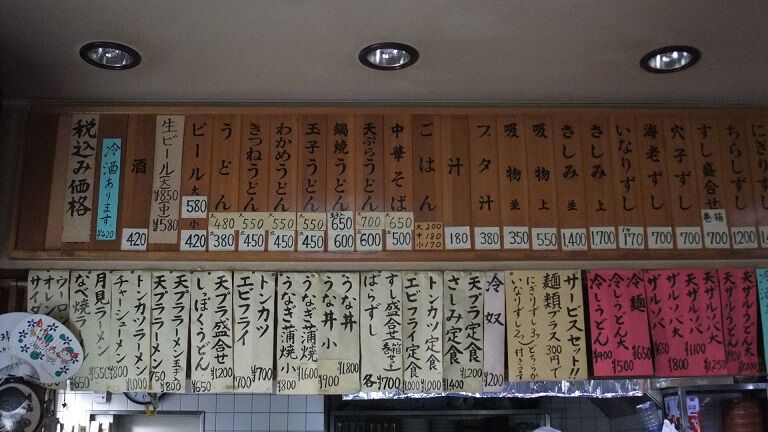 税込み価格
冷酒あります ¥420
酒 420
生ビール 大¥850 中¥580
ビール 大 580 小 420
うどん 大480 380
きつねうどん 大550 450
わかめうどん 大550 450
玉子うどん 大550 450
鍋焼うどん 650 600
天ぷらうどん 大700 600
中華そば 大650 500
ごはん 大200 中180 小170
汁 180
ブタ汁 380
吸物 並 350
吸物 上 550
さしみ 並 1,400
さしみ 上 1,700
いなりずし 1ケ70
海老ずし 700
穴子ずし 700
すし盛合せ 巻箱 700
ちらしずし 1,200
にぎりずし
なべ焼
月見ラーメン ¥550
チャーシューメン ¥800
トンカツラーメン ¥1,000
天プララーメン ¥750
天プララーメン 玉子 ¥800
しっぽくうどん ¥650
天プラ盛合せ ¥1,200
エビフライ ¥900
トンカツ ¥700
うなぎ蒲焼 小 ¥800
うなぎ蒲焼 ¥1600
うな丼 小 ¥900
うな丼 ¥1800
ばらずし
すし盛合せ 巻箱 各¥700
エビフライ定食 ¥1,000
トンカツ定食 ¥1,000
さしみ定食 ¥1,400
天プラ定食 ¥1,200
冷奴 ¥200
サービスセット!!
麺類プラス300円で
にぎりずし3ケ どちらか
いなりずし2ケ 付きます
冷しうどん ¥400
冷しうどん大 ¥500
冷麺 ¥650
ザルソバ ¥650
ザルソバ大 ¥800
天ザルソバ ¥1,000
天ザルソバ大 ¥1,100
天ザルうどん ¥900